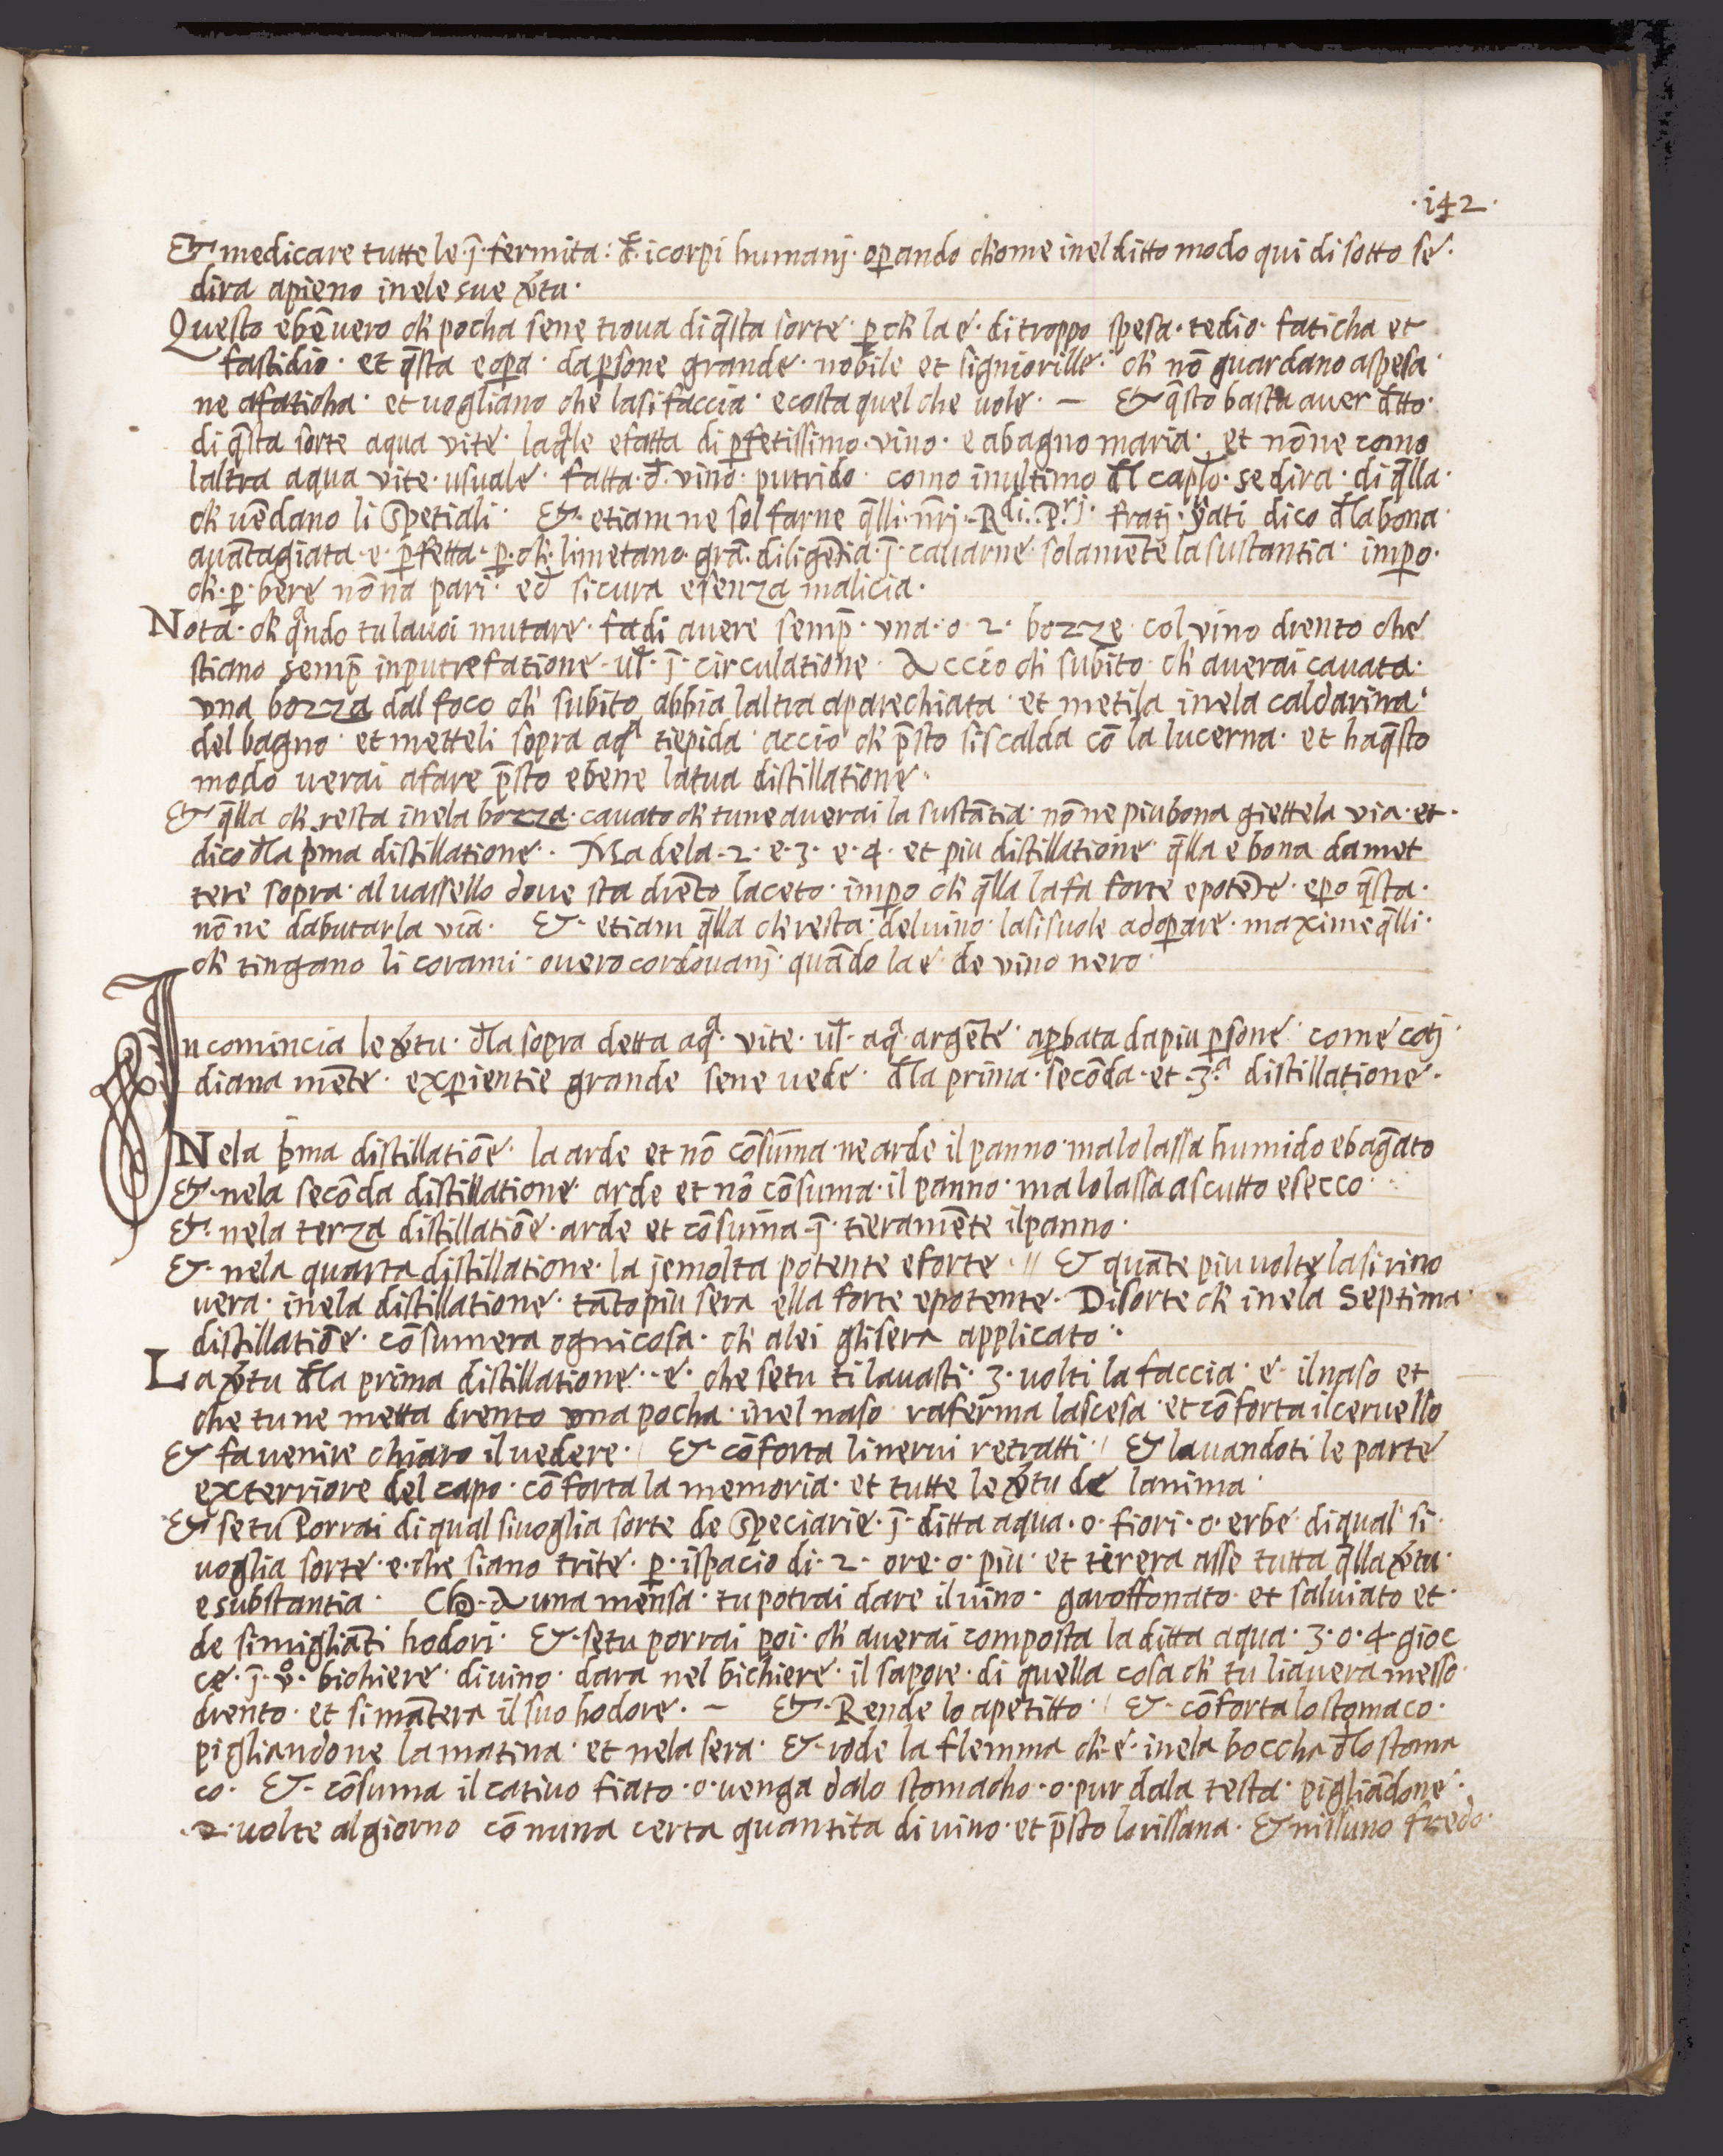 ·142·
Et medicare tutte le·j̄·fermita: đ·icorpi humanj· oꝑando chome inel ditto modo qui di sotto se·
dira apieno inele sue v̄tu·
Questo ebē vero ch̄ pocha sene trova di q̄sta sorte· ꝑ ch̄ la e· di troppo spesa· tedio· faticha et
fastidio· et q̄sta eoꝑa· da ꝑsone grande· nobile et signiorille· ch̄ nō guardano aspesa·
ne afaticha· et vogliano che lasi faccia· ecosta quel che vole· — Et q̄sto basta aver d̄tto·
di q̄sta sorte aqua vite· laq̄le efatta di ꝑfetissimo·vino· e abagno maria· et nōne como
laltra aqua vite·usuale· fatta·đ·vino· putrido· como inultimo đl capl̄o· se dira· di q̄lla·
ch̄ vēdano li Spetiali· Et·etiam ne sol farne q̄lli·nr̄j·Rdi··Prj· fratj· dico đla bona·
avātagiata·e·ꝑfetta·ꝑ·ch̄·limetano·grā·diligētia·j̄·cavarne·solamēte la sustantia· imꝑo·
ch̄·ꝑ·bere nōna pari· ed sicura esenza malicia·
Nota·ch̄ qando tu lavoi mutare· fa di avere semp̄· una·o·2· bozze· col vino drento che
stiano semp̄ inputrefatione·ul̄·j̄·circulatione· Accio ch̄ subito·ch̄ averai cavata·
una bozza dal foco ch̄ subito abbia laltra aparechiata· et metila inela caldarina·
del bagno· et metteli sopra aqa tiepida· accio ch̄ p̄sto siscalda cō la lucerna· et haq̄sto
modo verai afare p̄sto ebene latua distillatione·
Et q̄lla ch̄ resta inela bozza·cavato ch̄ tune averai la sustātia· nōne piu bona giettela via·et·
dico đla p̄ma distillatione· Ma dela·2·e·3·e·4·et piu distillatione· q̄lla e bona da met
tere sopra·al vassello dove sta drēto laceto·imꝑo ch̄ q̄lla la fa forte epotēte·eꝑo q̄sta·
nōne dabutarla via· Et·etiam q̄lla ch̄ resta·del vino·lasisuole adoꝑare·maxime q̄lli·
ch̄ tingano li corami·overo cordovanj·quādo la e·de vino nero·
In comincia le v̄tu·đla sopra detta aqa·vite·ul̄·aqa·argēte·aꝑbata da piu ꝑsone·come cotj
diana mēte·exꝑientie grande sene vede·đla prima·secōda·et·3a distillatione·
Nela p̄ma distillatiōe·la arde et nō cōsuma·ne arde il panno·ma lo lassa humido e bagāto
Et·nela secōda distillatione·arde et nō cōsuma·il panno·ma lo lassa ascutto esecco·
Et·nela terza distillatiōe·arde et cōsuma·j̄·tieramēte il panno·
Et·nela quarta distillatione·la jemolta potente eforte·// Et quāte piu volte lasirino
vera·inela distillatione·tāto piu sera ella forte epotente·Disorte ch̄ inela Septima·
distillatiōe·cōsumera ognicosa·ch̄ alei glisera applicato·
La v̄tu đla prima distillatione·e·che setu ti lavasti·3·volti la faccia·e·ilnaso et
che tu ne metta drento una pocha·inel naso·raferma lascesa·et cōforta ilcervello
Et fa venire chiaro il vedere·/ Et·cōforta linervi retratti·/ Et lavandoti le parte
exterriore del capo·cōforta la memoria·et tutte le v̄tu de lanima·
Et setu Porrai di qual sivoglia sorte de Speciarie·j̄·ditta aqua·o·fiori·o·erbe·di qual si·
voglia sorte·e·che siano trite·ꝑ·ispacio di·2·ore·o·piu·et tirera asse tutta q̄lla v̄tu·
e substantia· a una mensa·tu potrai dare ilvino·garoffonato·et salviato et·
de simigliāti hodori· Et·setu porrai poi·ch̄ averai composta la ditta aqua·3·o·4·gioc
ce·j̄·vo·bichiere·di vino·dara nel bichiere·il sapore·di quella cosa ch̄ tu li avera messo·
drento·et si mātera il suo hodore·— Et·Rende lo apetitto·/ Et·cōforta lo stomaco·
pigliandone la matina·et nela sera· Et·rode la flemma ch̄·e·inela boccha đlo stoma
co· Et·cōsuma il cativo fiato·o·venga dalo stomacho·o·pur dala testa·pigliādone·
·2·volte al giorno cō nuna certa quantita di vino·et p̄sto lorissana·Et nissuno fredo·